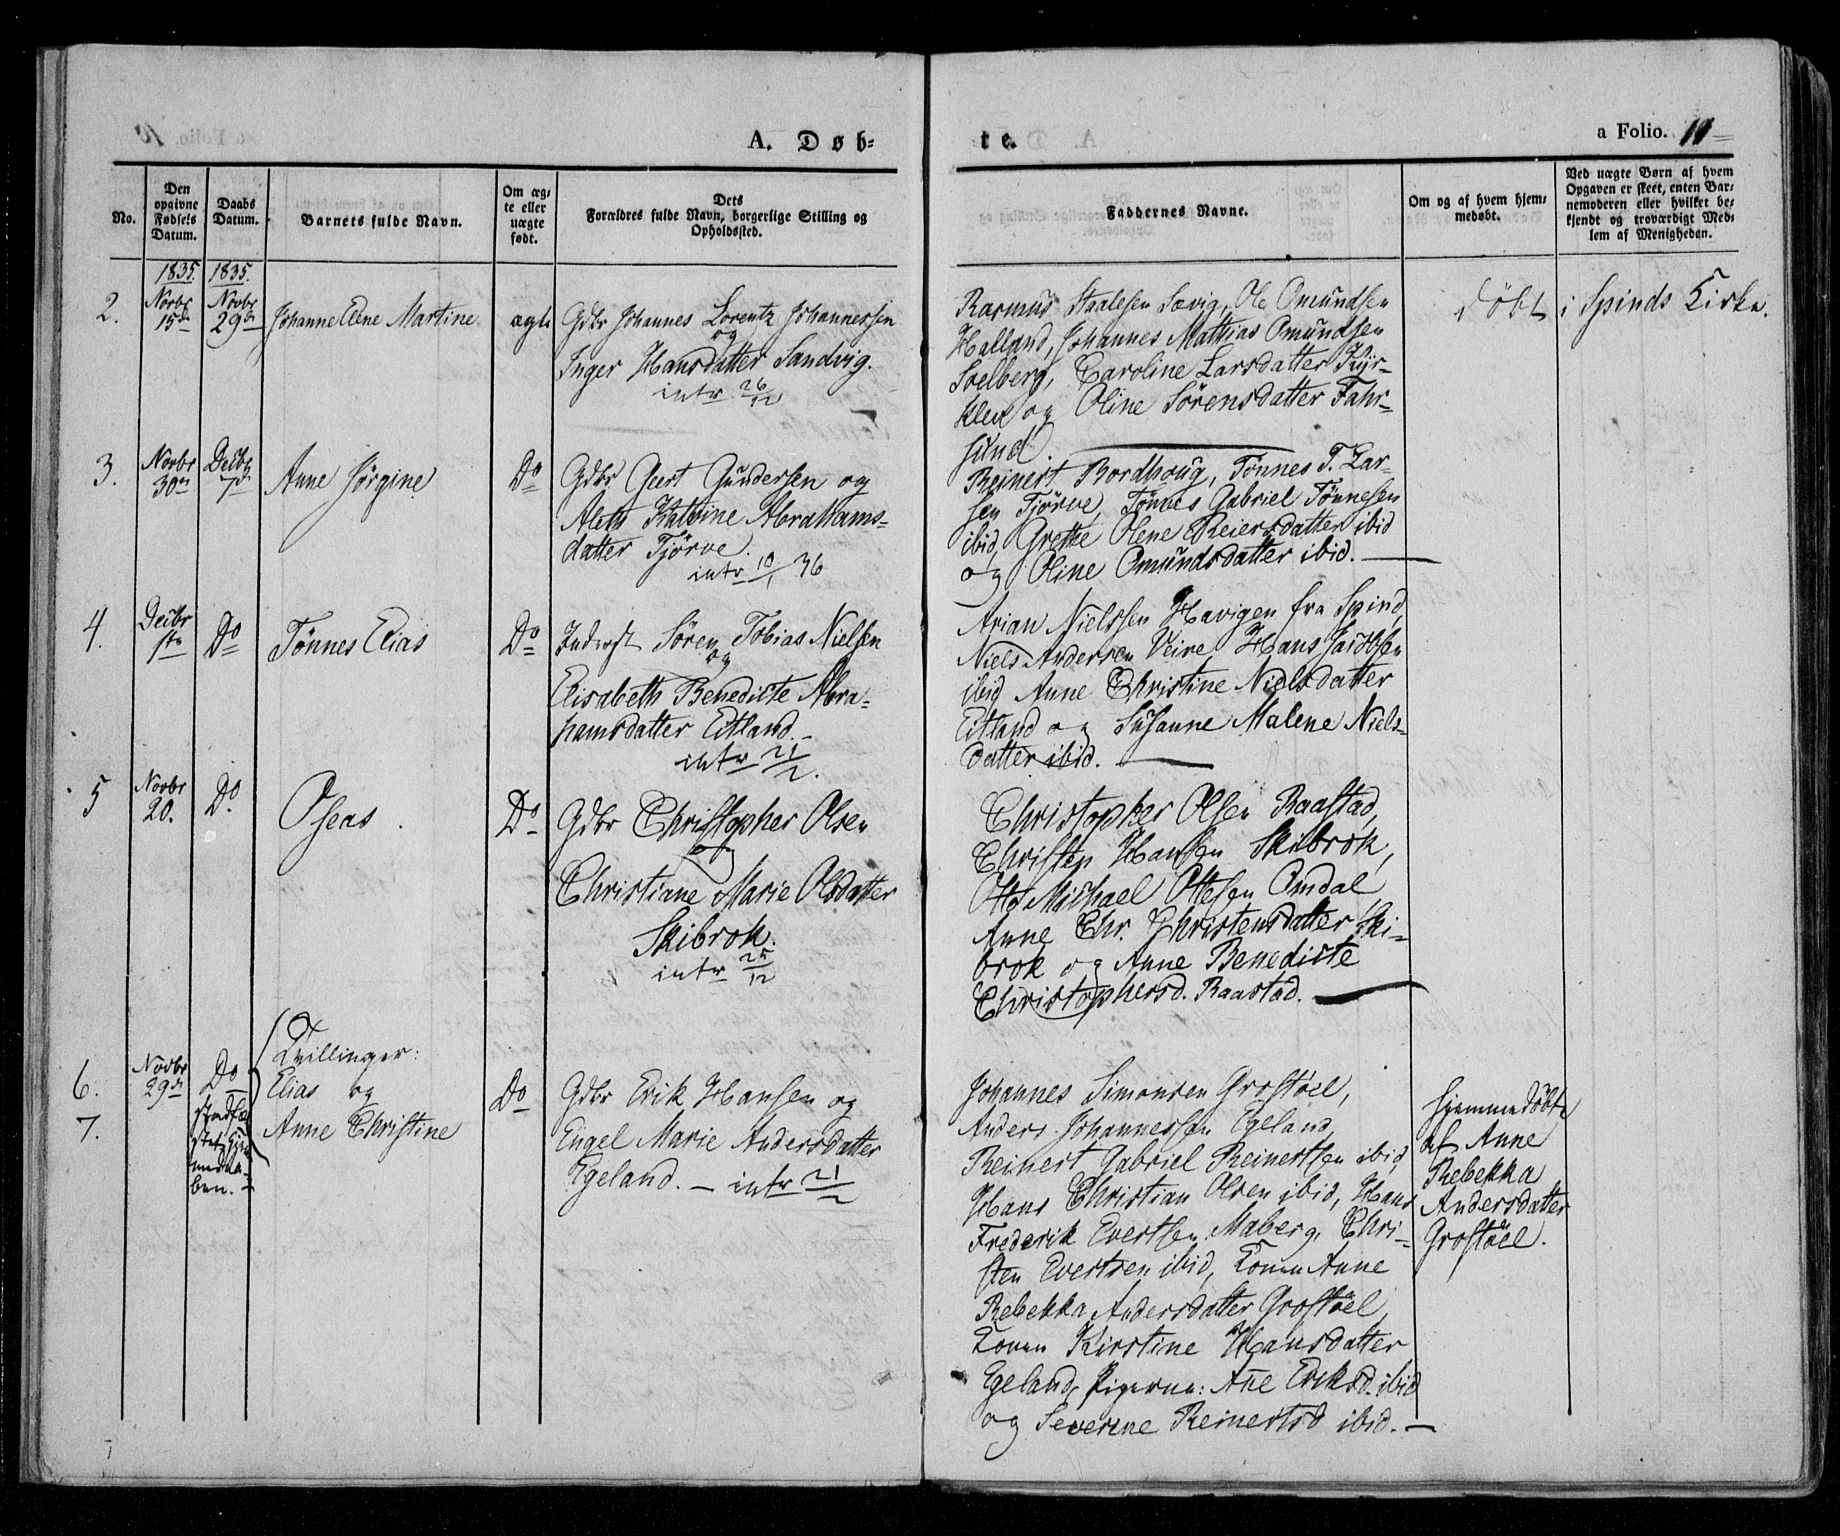 A. Døb-
te.
a Folio. 11
No.
Den opgivne Fødsels Datum.
Daabs Datum.
Barnets fulde Navn.
Om ægte eller uægte født.
Dets
Forældres fulde Navn, borgerlige Stilling og
Opholdssted.
Faddernes Navne.
Om og af hvem hjem-
medøbt.
Ved uægte Børn af hvem
Opgaven er skeet, enten Bar-
nemoderen eller hvilket be-
kjendt og troværdigt Med-
lem af Menigheden.
1835. 1835.
2. Novbr 15de Novbr 29de Johanne Elene Martine ægte
Gdbr Johannes Lorentz Johannessen
og
Inger Hansdatter Sandvig.
intr 26/12
Rasmus Staalesen Sævig, Ole Omundsen
Halland, Johannes Mathias Omundsen
Soelberg, Caroline Larsdatter Kjør-
kleve og Oline Sørensdatter Fahr-
sund.
døbt i Spinds Kirke.
3. Novbr 30te Decbr 7de Anne Jørgine Do
Gdbr Geert Gundersen og
Aleth Katrine Abrahams-
datter Tjørve.
intr 10/1 36
Reinert Bordhoug, Tønnes T. Lar-
sen Tjørve, Tønnes Gabriel Tønnesen
ibid, Grethe Olene Reiersdatter ibid
og Oline Omundsdatter ibid.
4. Decbr 1ste Do Tønnes Elias Do
Inderst Søren Tobias Nielsen
og
Elisabeth Benedicte Abra-
hamsdatter Eitland.
intr 21/2.
Arian Nielsen Havigen fra Spind,
Niels Andersen Veire Hans Jacobsen
ibid Anne Christine Nielsdatter
Eitland og Susanne Malene Niels-
datter ibid.
5 Novbr 20. Do. Oseas. Do
Gdbr Christopher Olsen
og
Christiane Marie Olsdatter
Skibrok.
intr 25/12
Christopher Olsen Raastad,
Christen Hansen Skibrok,
Otto Michael Ottesen Omdal
Anne Chr. Christensdatter Ski-
brok og Anne Benedicte
Christophersd. Raastad.
6. Novbr 29de Do Tvillinger:
Elias og
7. Anne Christine Do
stadfæ-
stet Hjem-
medaa-
ben.
Gdbr Erik Hansen og
Engel Marie Andersdatter
Egeland. — intr 21/2
Johannes Simonsen Grostøel,
Anders Johannessen Egeland,
Reinert Gabriel Reinertsen ibid,
Hans Christian Olsen ibid, Hans
Frederik Evertsen Maberg, Chri-
sten Evertsen ibid, Konen Anne
Rebekka Andersdatter Grostøel,
Konen Kirstine Hansdatter
Egeland, Pigerne: Ane Eriksd. ibid
og Severine Reinertsd ibid.
hjemmedøbt
af Anne
Rebekka
Andersdatter
Grostøel.